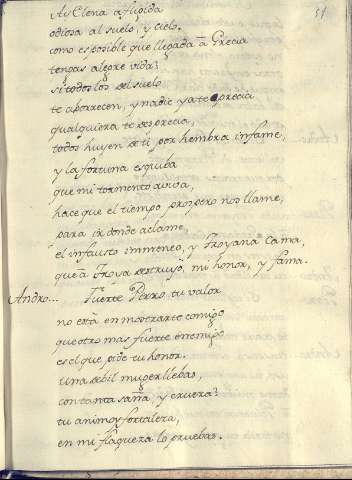 51
Ay Elena afligida
odiosa al suelo, y cielo.
como es posible que llegada a Grecia
tengas alegre vida?
si todos los del suelo
te aborrecen, y nadie ya te precia
qualquiera te desprecia,
todos huyen de ti por hembra infame,
y la fortuna esquiba
que mi tormento aviva,
hace que el tiempo prospero nos llame,
para ir donde aclame,
el infausto immeneo, y Troyana cama,
que a Troya destruyó, mi honor, y fama.
Andro... Fuerte Pirro tu valor
no está en mostrarte comigo
que otro mas fuerte enemigo
es el que pide tu honor.
una debil muger llebas,
con tanta saña, y crueza?
tu animo y fortaleza,
en mi flaqueza lo pruebas.